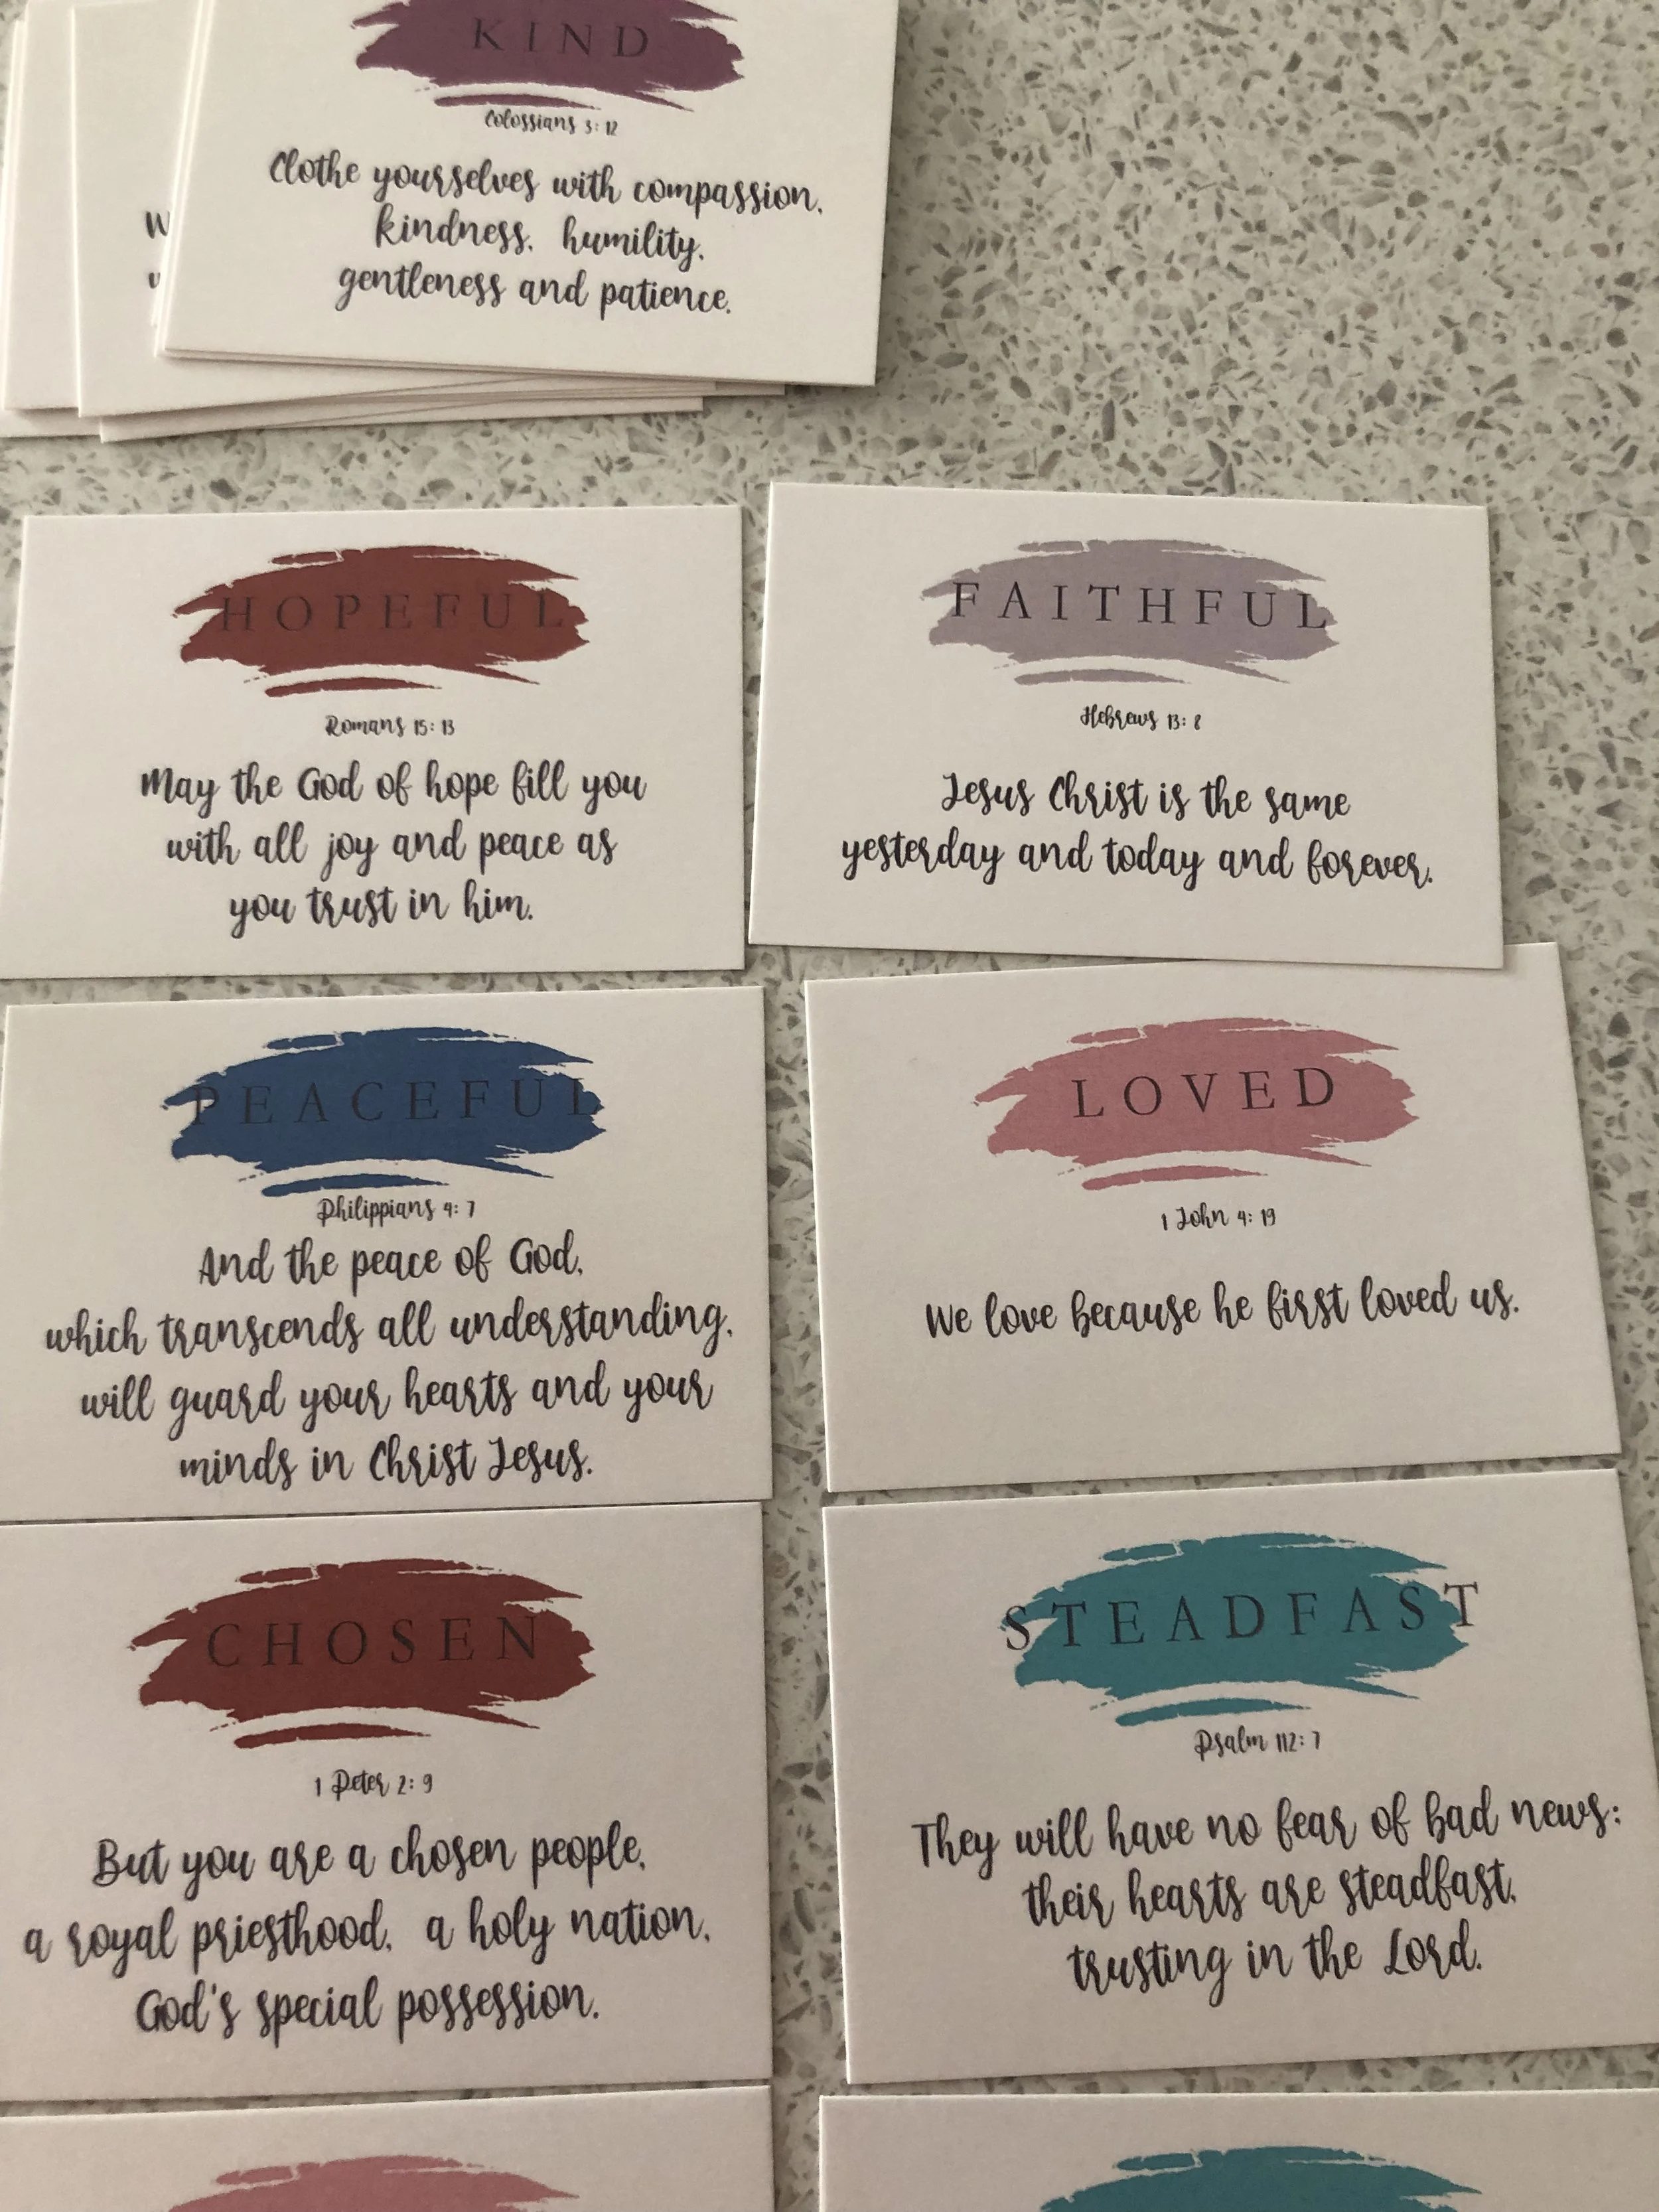 KIND
Colossians 3: 12
Clothe yourselves with compassion,
kindness, humility,
gentleness and patience.
HOPEFUL
Romans 15: 13
May the God of hope fill you
with all joy and peace as
you trust in him.
FAITHFUL
Hebrews 13: 8
Jesus Christ is the same
yesterday and today and forever.
PEACEFUL
Philippians 4: 7
And the peace of God,
which transcends all understanding,
will guard your hearts and your
minds in Christ Jesus.
LOVED
1 John 4: 19
We love because he first loved us.
CHOSEN
1 Peter 2: 9
But you are a chosen people,
a royal priesthood, a holy nation,
God's special possession.
STEADFAST
Psalm 112: 7
They will have no fear of bad news;
their hearts are steadfast,
trusting in the Lord.